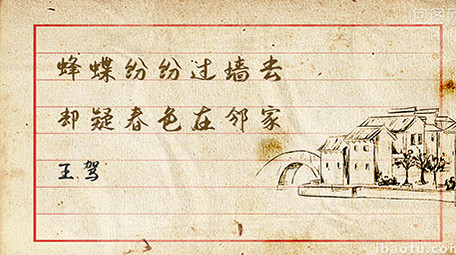 蜂蝶纷纷过墙去
却疑春色在邻家
王驾
ibaotu.com